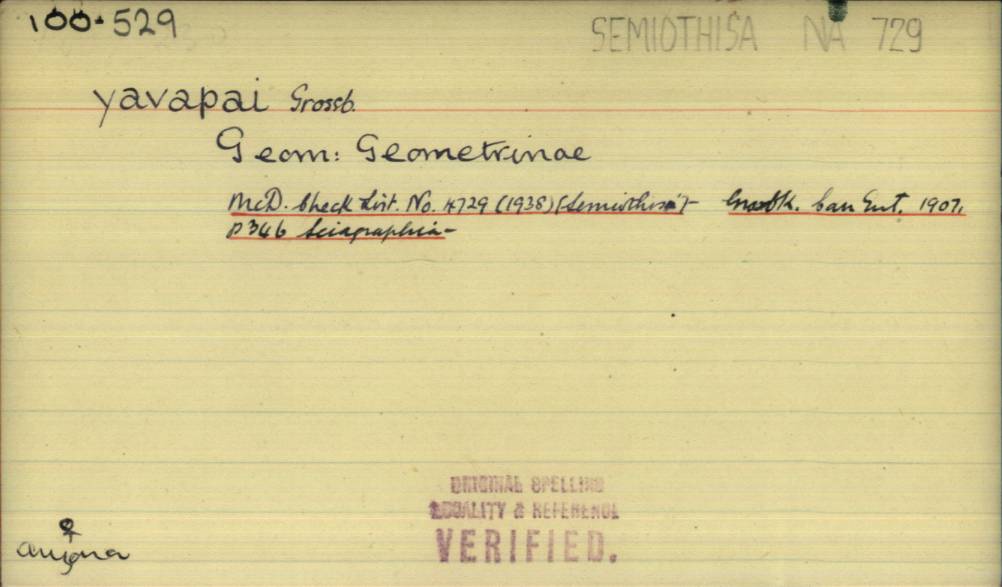 100.529
SEMIOTHISA NA 729
yavapai Grossb.
Geom: Geometrinae
McD. Check List. No. 4729 (1938) [Semiothisa]- Grossbk. Can Ent. 1907,
p 346 Sciagraphia-
ORIGINAL SPELLING
LOCALITY & REFERENCE
VERIFIED.
♀
Arizona